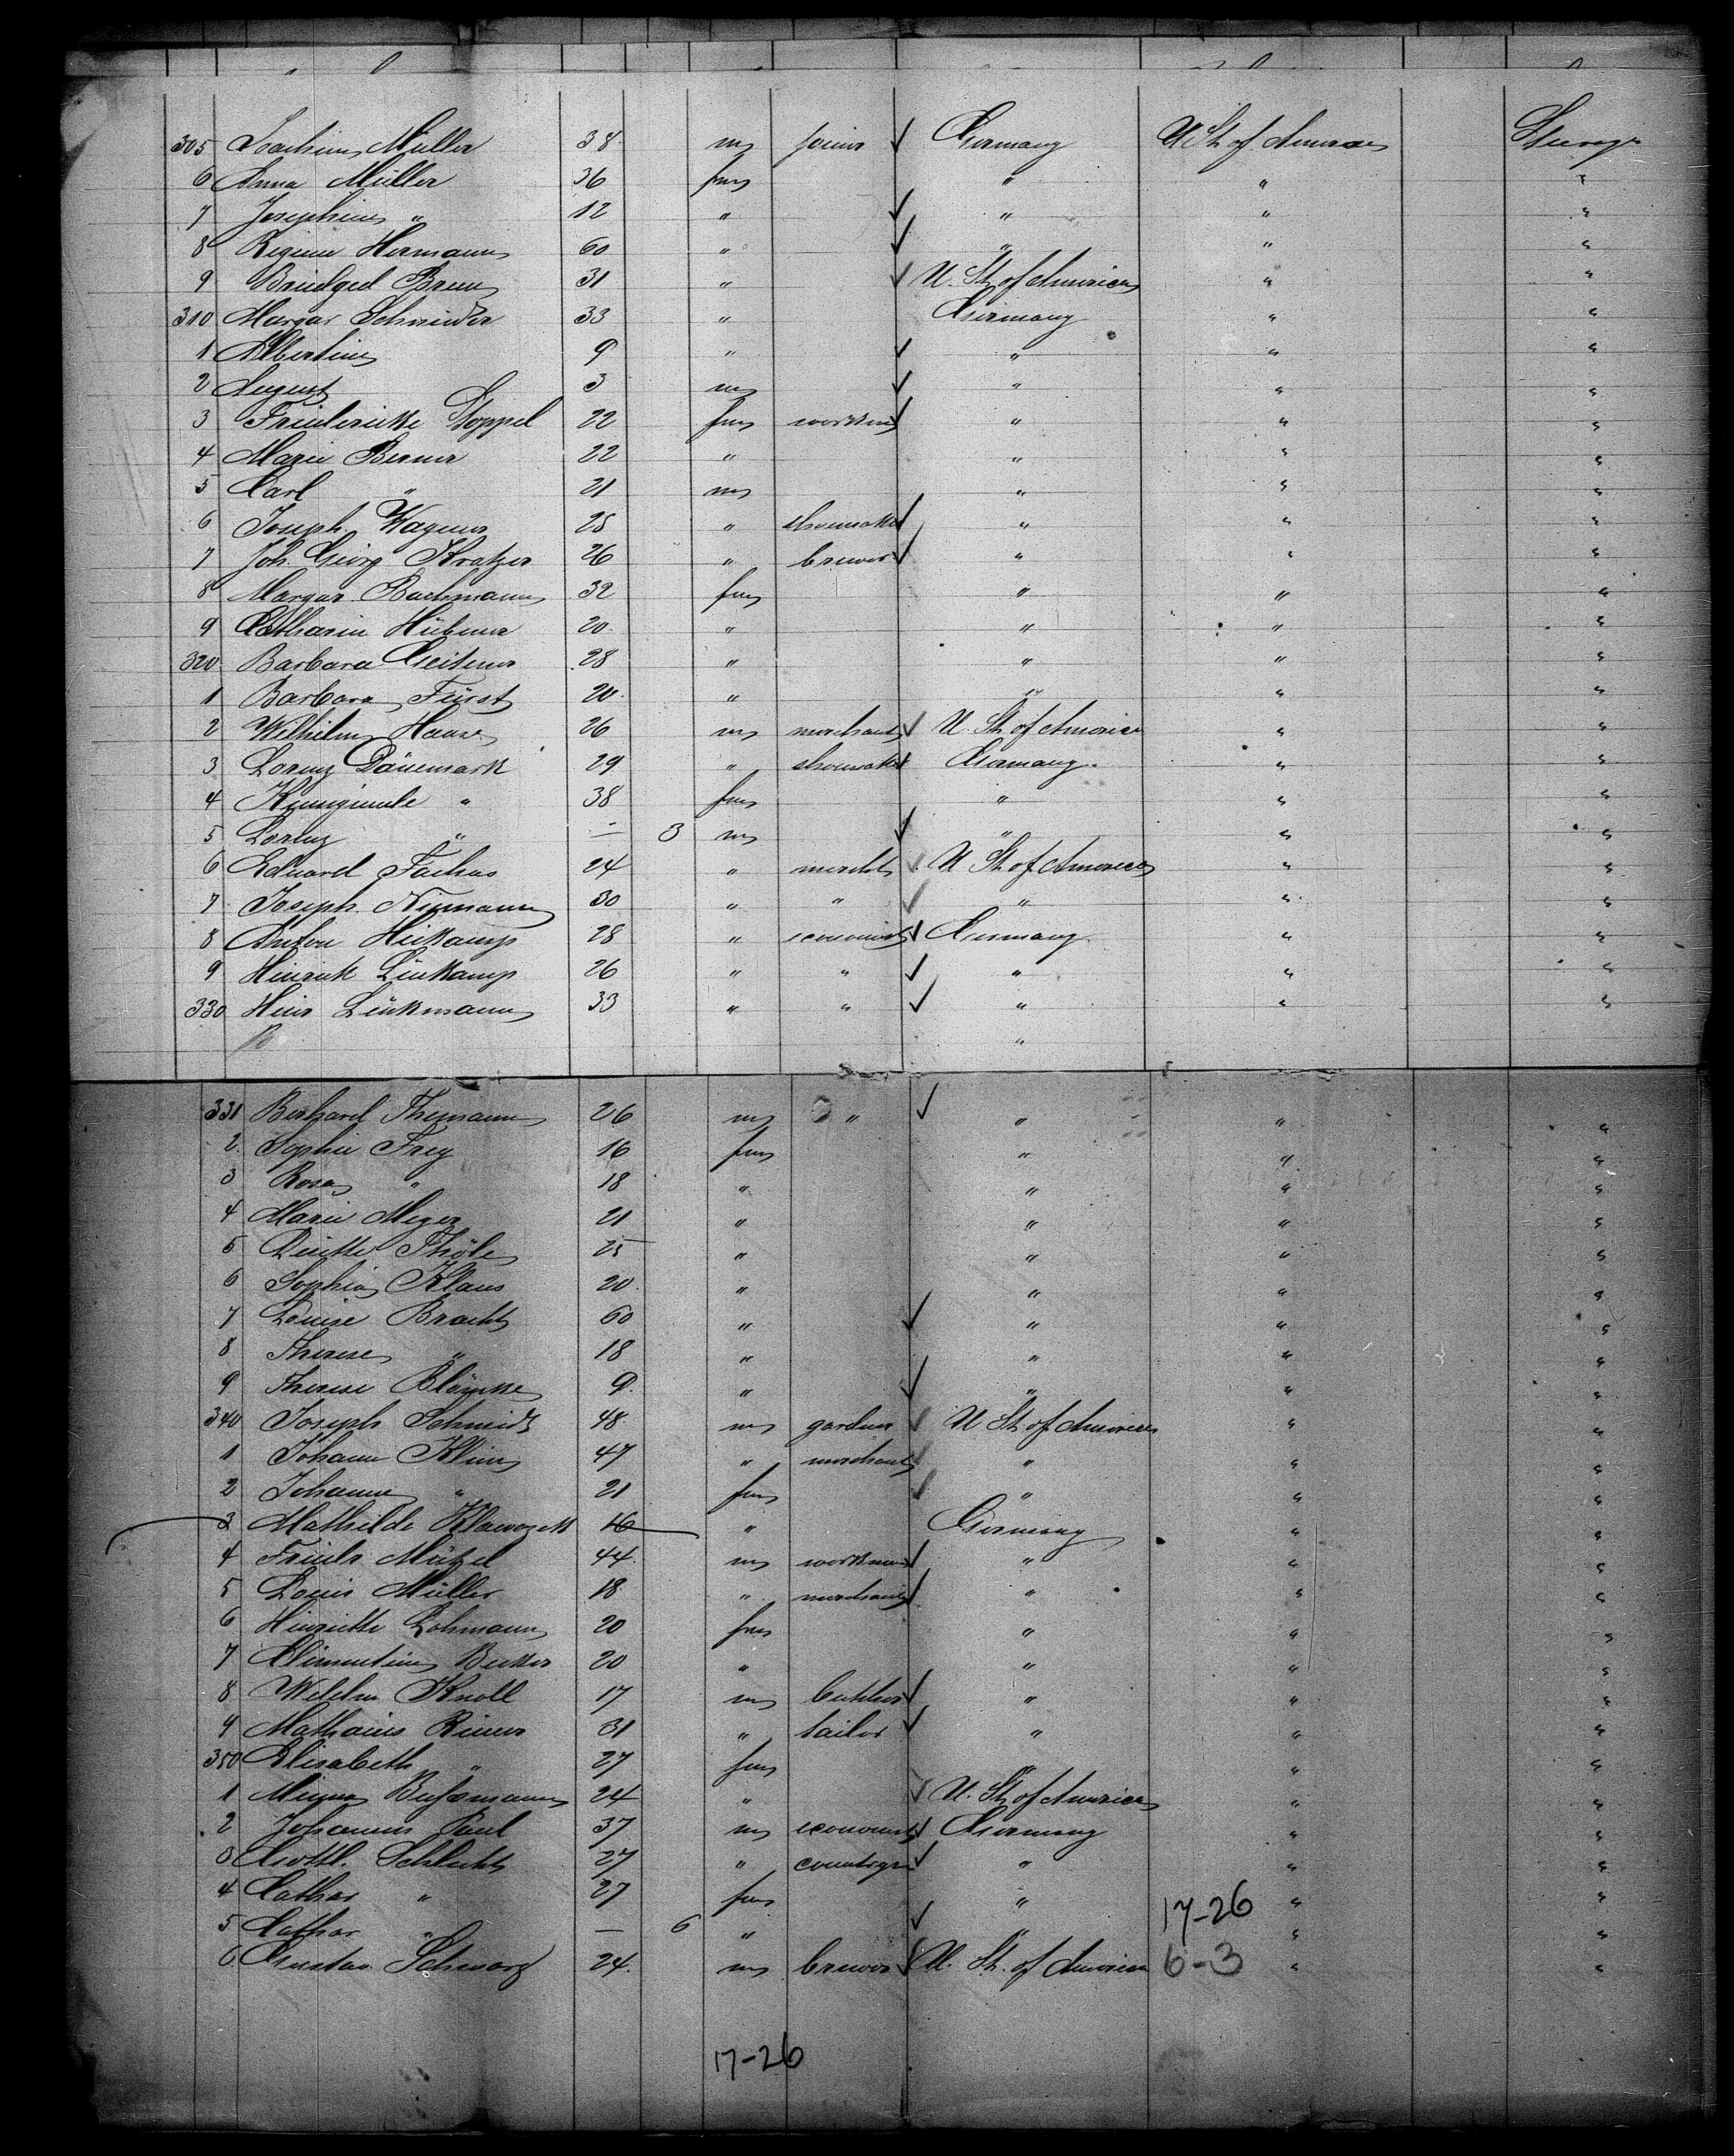 305 Joachim Müller 38 m joiner Germany U St. of America Steerage
6 Anna Müller 36 fm " " "
7 Josephine " 12 " " " "
8 Regine Hermann 60 " " " "
9 Bridged Breen 31 " U. St. of America " "
310 Margar Schneider 33 " Germany " "
1 Albertine 9 " " " "
2 August 3 m " " "
3 Friedericke Stoppel 22 fm workm " " "
4 Marie Berner 22 " " " "
5 Carl " 21 m " " "
6 Joseph Wagener 25 " shoemaker " " "
7 Joh. Georg Kratzer 26 " brewer " " "
8 Margar. Bachmann 32 fm " " "
9 Catharin Hübner 20. " " " "
320 Barbara Geitner 28 " " " "
1 Barbara Fürst 20. " " " "
2 Wilhelm Haase 26 m merchant U. St. of America " "
3 Lorenz Dänemark 29 " shoemaker Germany. " "
4 Kunigunde " 38 fm " " "
5 Lorenz " — 3 m " " "
6 Eduard Fuchs 24 " mercht U. St. of America " "
7 Joseph Niemann 30 " " " " "
8 Anton Heikamp 28 " economist Germany. " "
9 Heinrich Linkamp 26 " " " " "
330 Heinr Linkmann 33 " " " " "
"
331 Berhard Themann 26 m " " " "
2 Sophie Frey 16 fm " " "
3 Rosa " 18 " " " "
4 Marie Meyer 21 " " " "
5 Thöle 25 " " " "
6 Sophia Klaus 20. " " " "
7 Louise Bracht 60 " " " "
8 Therese " 18 " " " "
9 Therese Blömke 9. " " " "
340 Joseph Schmidt 48 m gardner U St. of America " "
1 Johann Klein 47 " merchant " " "
2 Johanna " 21 fm " " "
3 Mathilde Klawozek 16 " Germany " "
4 Friedr. Mützel 44. m workman " " "
5 Louis Müller 18 " merchant " " "
6 Henriette Lohmann 20 fm " " "
7 Clementine Becker 20 " " " "
8 Wilhlm Knoll 17 m butcher " " "
9 Mathaeus Riener 31 " tailor " " "
350 Elisabeth " 27 fm " " "
1 Minna Bussmann 24 " U. St. of America " "
2 Johannes Paul 37 m economist Germany " "
3 Gottl. Schlecht 27 " " " "
4 Cathar " 27 fm " " "
17-26
5 Cathar " — 6 " " " "
6 Gustav Schwarz 24. m brewer U. St. of America " "
6-3
17-26